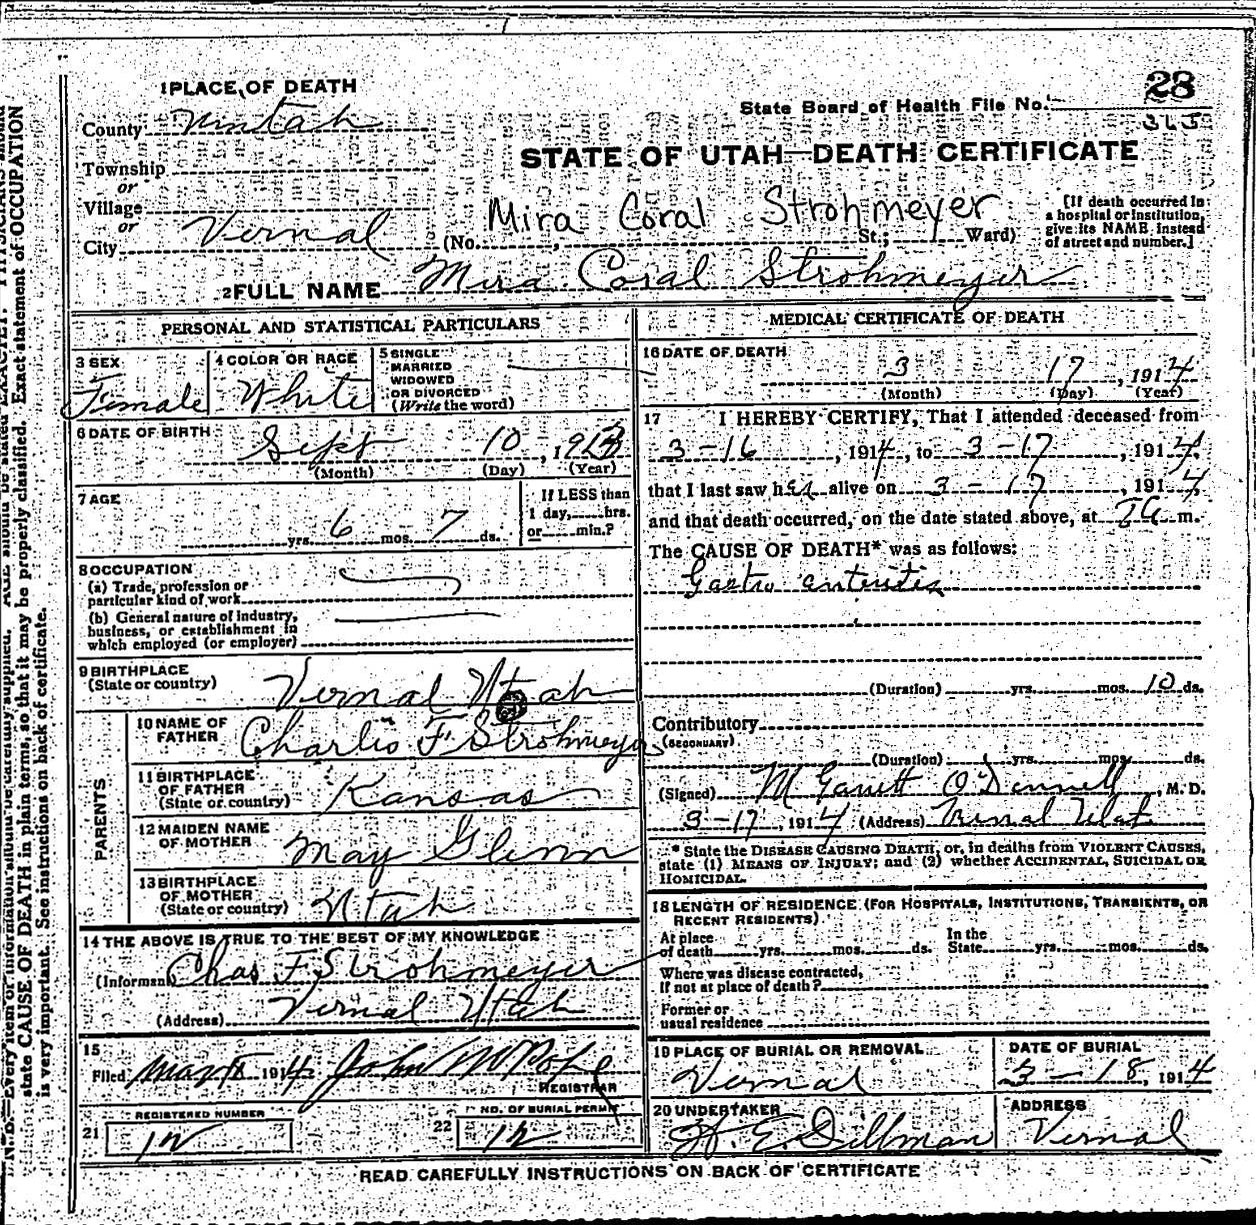 28
State Board of Health File No.
1 PLACE OF DEATH
County Uintah
STATE OF UTAH—DEATH CERTIFICATE
Township
or
Village
or
City Vernal (No. , St.; Ward)
Mira Coral Strohmeyer
[If death occurred in
a hospital or institution,
give its NAME instead
of street and number.]
2 FULL NAME Mira Coral Strohmeyer
PERSONAL AND STATISTICAL PARTICULARS
3 SEX
Female
4 COLOR OR RACE
White
5 SINGLE
MARRIED
WIDOWED
OR DIVORCED
(Write the word)
6 DATE OF BIRTH
Sept 10, 1913
(Month) (Day) (Year)
7 AGE
yrs. 6 mos. 7 ds.
If LESS than
1 day, hrs.
or min.?
8 OCCUPATION
(a) Trade, profession or
particular kind of work
(b) General nature of industry,
business, or establishment in
which employed (or employer)
9 BIRTHPLACE
(State or country)
Vernal Utah
PARENTS
10 NAME OF
FATHER
Charles F Strohmeyer
11 BIRTHPLACE
OF FATHER
(State or country)
Kansas
12 MAIDEN NAME
OF MOTHER
May Glenn
13 BIRTHPLACE
OF MOTHER
(State or country)
Utah
14 THE ABOVE IS TRUE TO THE BEST OF MY KNOWLEDGE
(Informant Chas F Strohmeyer
(Address) Vernal Utah
15
Filed 1914 John W Pope
REGISTRAR
REGISTERED NUMBER
21 12
NO. OF BURIAL PERMIT
22 12
MEDICAL CERTIFICATE OF DEATH
16 DATE OF DEATH
3 17, 1914
(Month) (Day) (Year)
17 I HEREBY CERTIFY, That I attended deceased from
3-16, 1914, to 3-17, 1914,
that I last saw her alive on 3-17, 1914
and that death occurred, on the date stated above, at m.
The CAUSE OF DEATH* was as follows:
Gastro enteritis
(Duration) yrs. mos. 10 ds.
Contributory
(SECONDARY)
(Duration) yrs. mos. ds.
(Signed) M Garrett O'Donnell, M. D.
3-17, 1914 (Address) Vernal Utah
* State the DISEASE CAUSING DEATH, or, in deaths from VIOLENT CAUSES,
state (1) MEANS OF INJURY; and (2) whether ACCIDENTAL, SUICIDAL OR
HOMICIDAL.
18 LENGTH OF RESIDENCE (FOR HOSPITALS, INSTITUTIONS, TRANSIENTS, OR
RECENT RESIDENTS)
At place
of death yrs. mos. ds.
In the
State yrs. mos. ds.
Where was disease contracted,
If not at place of death?
Former or
usual residence
19 PLACE OF BURIAL OR REMOVAL
Vernal
DATE OF BURIAL
3-18, 1914
20 UNDERTAKER
ADDRESS
Dillman
Vernal
READ CAREFULLY INSTRUCTIONS ON BACK OF CERTIFICATE
N. B.—Every item of information should be carefully supplied. AGE should be stated EXACTLY. PHYSICIANS should
state CAUSE OF DEATH in plain terms, so that it may be properly classified. Exact statement of OCCUPATION
is very important. See instructions on back of certificate.